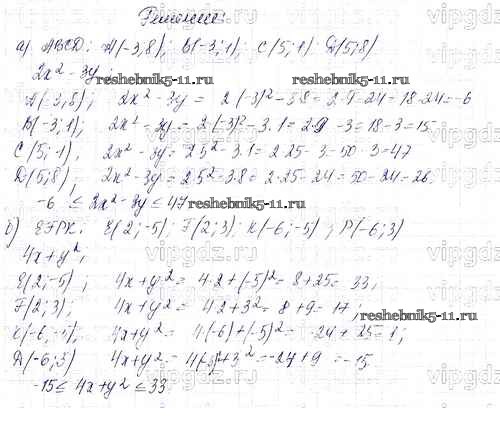 Решение:
а) ABCD: A(-3;8); B(-3;1); C(5;1) D(5;8)
2x² - 3y;
A(-3;8); 2x² - 3y = 2(-3)² - 3·8 = 2·9 - 24 = 18 - 24 = -6
B(-3;1); 2x² - 3y = 2·(-3)² - 3·1 = 2·9 - 3 = 18 - 3 = 15
C(5;1), 2x² - 3y = 2·5² - 3·1 = 2·25 - 3 = 50 - 3 = 47
D(5;8), 2x² - 3y = 2·5² - 3·8 = 2·25 - 24 = 50 - 24 = 26
-6 ≤ 2x² - 3y ≤ 47
б) EFPK: E(2;-5); F(2;3); K(-6;-5); P(-6;3)
4x + y²;
E(2;-5); 4x + y² = 4·2 + (-5)² = 8 + 25 = 33;
F(2;3); 4x + y² = 4·2 + 3² = 8 + 9 = 17;
K(-6;-5); 4x + y² = 4(-6) + (-5)² = -24 + 25 = 1;
4x + y² = -24 + 9 = -15
-15 ≤ 4x + y² ≤ 33
reshebnik5-11.ru
reshebnik5-11.ru
reshebnik5-11.ru
reshebnik5-11.ru
reshebnik5-11.ru
vipgdz.ru